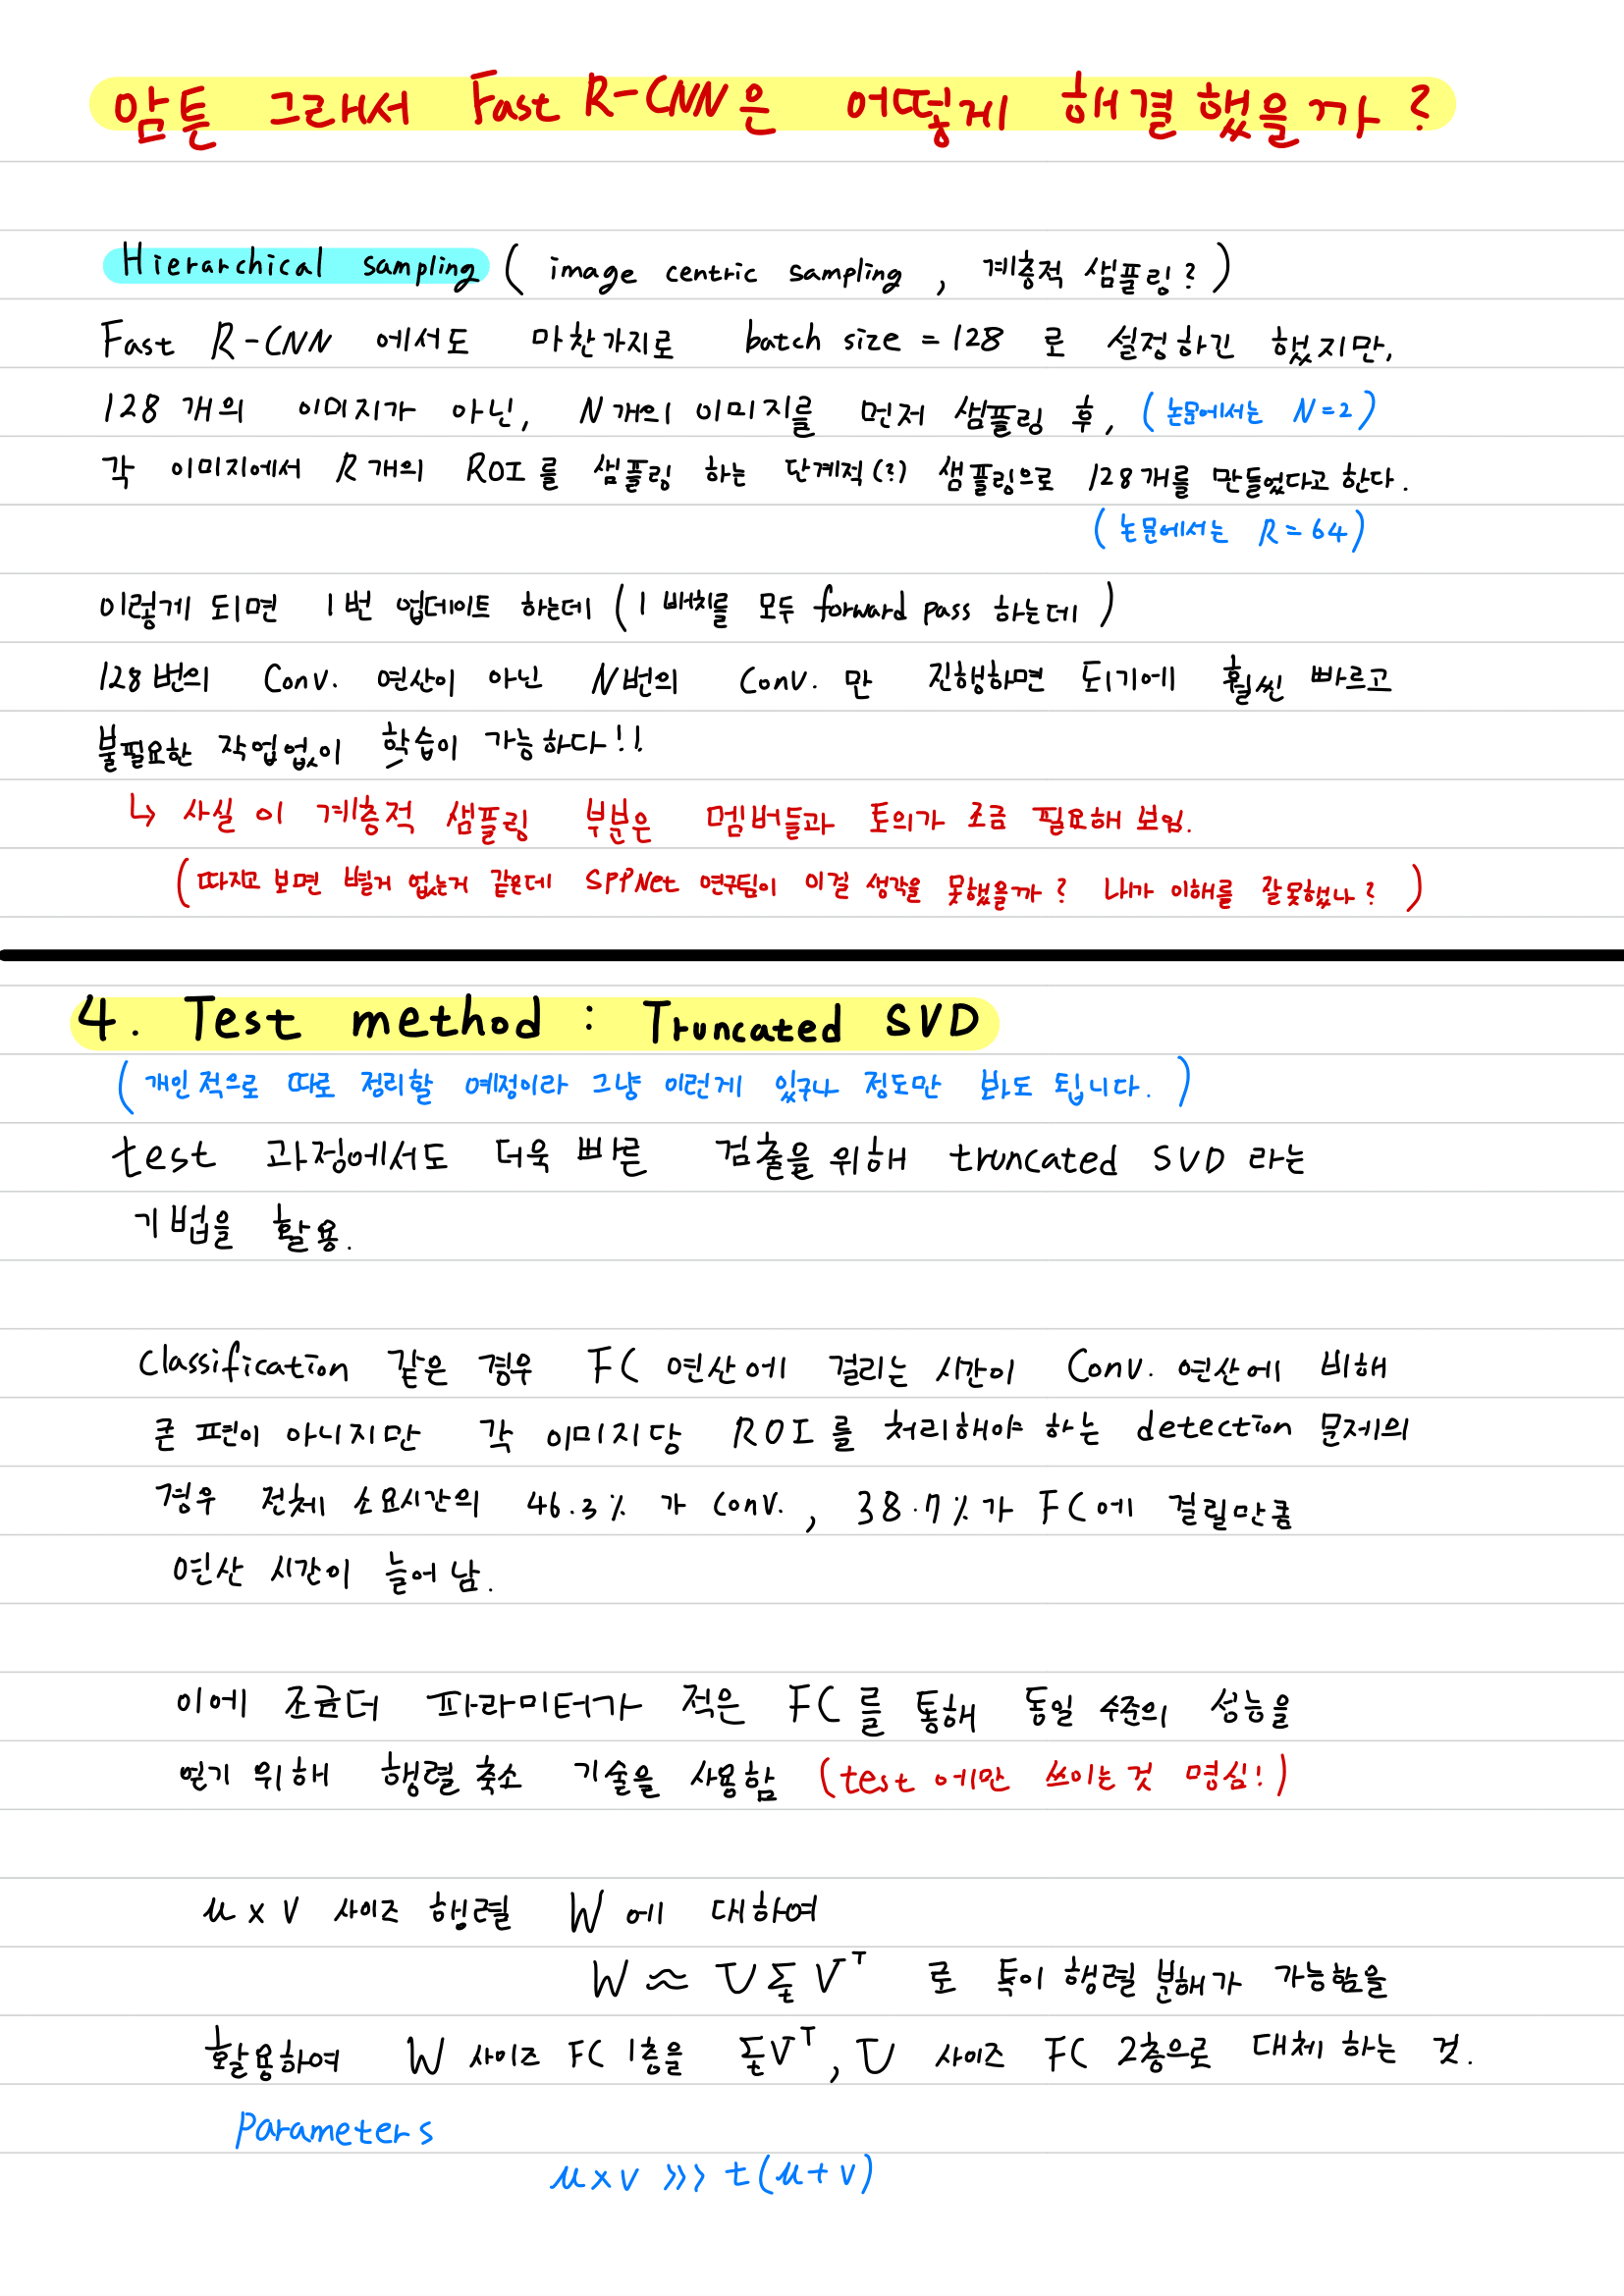 암튼 그래서 Fast R-CNN은 어떻게 해결했을까?
Hierarchical sampling (image centric sampling, 계층적 샘플링?)
Fast R-CNN 에서도 마찬가지로 batch size = 128 로 설정하긴 했지만,
128개의 이미지가 아닌, N개의 이미지를 먼저 샘플링 후, (논문에서는 N=2)
각 이미지에서 R개의 ROI를 샘플링 하는 단계적(?) 샘플링으로 128개를 만들었다고 한다.
(논문에서는 R=64)
이렇게 되면 1번 업데이트 하는데 (1 배치를 모두 forward pass 하는데)
128번의 Conv. 연산이 아닌 N번의 Conv. 만 진행하면 되기에 훨씬 빠르고
불필요한 작업없이 학습이 가능하다!!
↳ 사실 이 계층적 샘플링 부분은 멤버들과 토의가 조금 필요해 보임.
(따지고 보면 별거 없는거 같은데 SPPNet 연구팀이 이걸 생각을 못했을까? 내가 이해를 잘못했나?)
4. Test method : Truncated SVD
(개인적으로 따로 정리할 예정이라 그냥 이런게 있구나 정도만 봐도 됩니다.)
test 과정에서도 더욱 빠른 검출을 위해 truncated SVD 라는
기법을 활용.
Classification 같은 경우 FC 연산에 걸리는 시간이 Conv. 연산에 비해
큰 편이 아니지만 각 이미지당 ROI를 처리해야 하는 detection 문제의
경우 전체 소요시간의 46.3% 가 conv. , 38.7%가 FC에 걸릴만큼
연산 시간이 늘어남.
이에 조금더 파라미터가 적은 FC를 통해 동일 수준의 성능을
얻기 위해 행렬 축소 기술을 사용함 (test 에만 쓰이는것 명심!)
u x v 사이즈 행렬 W 에 대하여
W ≈ U Σt V^T 로 특이 행렬 분해가 가능함을
활용하여 W 사이즈 FC 1층을 ΣtV^T, U 사이즈 FC 2층으로 대체 하는 것.
Parameters
u x v >>> t(u+v)